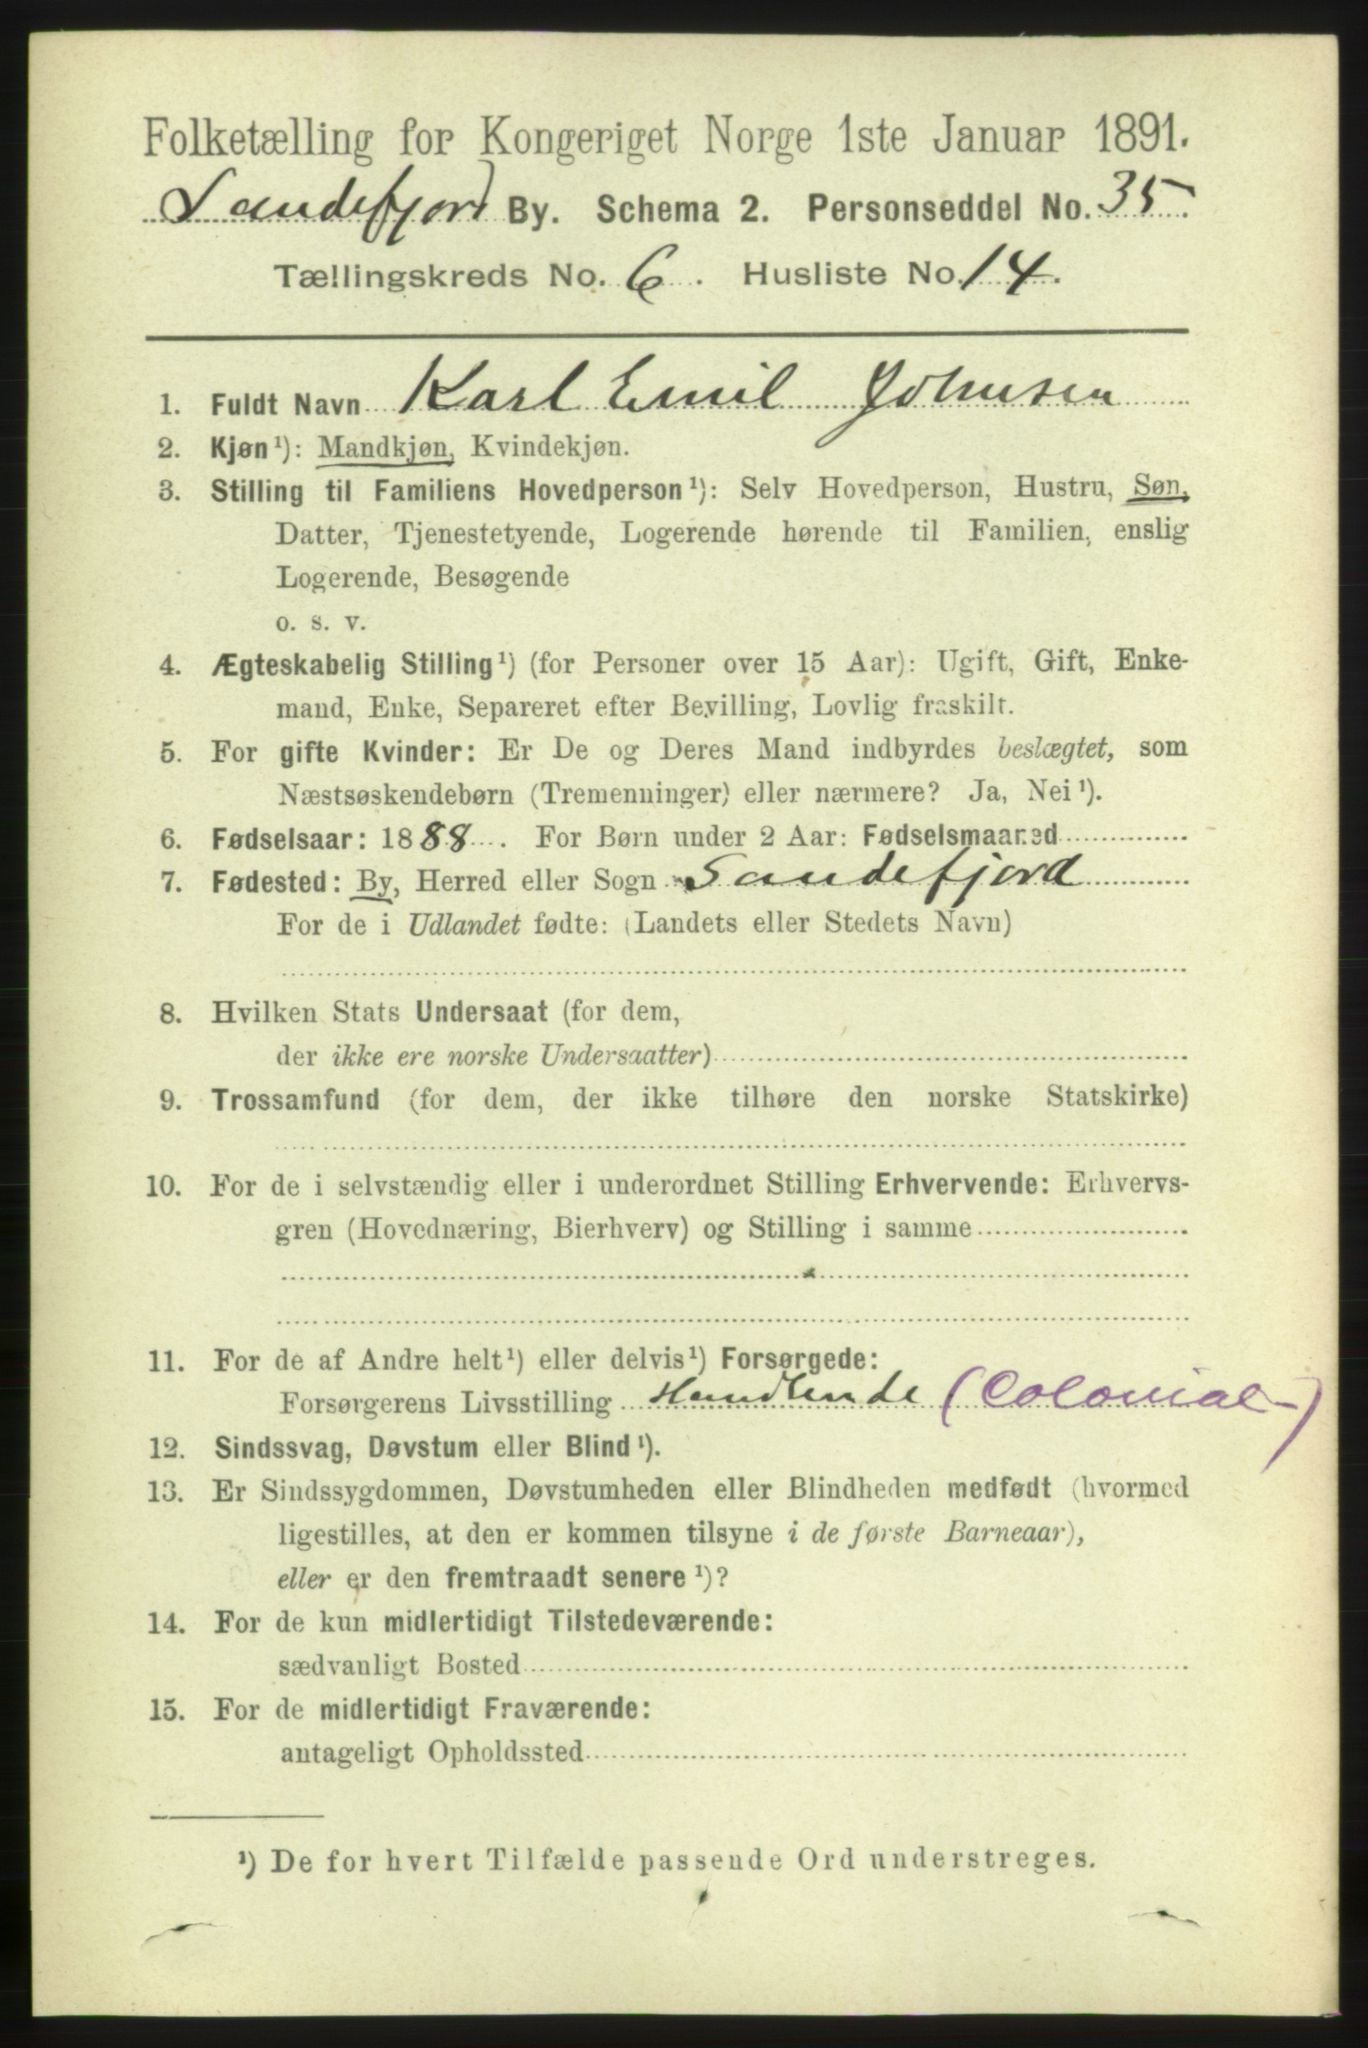 Folketælling for Kongeriget Norge 1ste Januar 1891.
Sandefjord By. Schema 2. Personseddel No. 35.
Tællingskreds No. 6. Husliste No. 14.
1. Fuldt Navn Karl Emil Johnsen
2. Kjøn¹): Mandkjøn, Kvindekjøn.
3. Stilling til Familiens Hovedperson¹): Selv Hovedperson, Hustru, Søn,
Datter, Tjenestetyende, Logerende hørende til Familien, enslig
Logerende, Besøgende
o. s. v.
4. Ægteskabelig Stilling¹) (for Personer over 15 Aar): Ugift, Gift, Enke-
mand, Enke, Separeret efter Bevilling, Lovlig fraskilt.
5. For gifte Kvinder: Er De og Deres Mand indbyrdes beslægtet, som
Næstsøskendebørn (Tremenninger) eller nærmere? Ja, Nei¹).
6. Fødselsaar: 1888. For Børn under 2 Aar: Fødselsmaaned
7. Fødested: By, Herred eller Sogn Sandefjord
For de i Udlandet fødte: (Landets eller Stedets Navn)
8. Hvilken Stats Undersaat (for dem,
der ikke ere norske Undersaatter)
9. Trossamfund (for dem, der ikke tilhøre den norske Statskirke)
10. For de i selvstændig eller i underordnet Stilling Erhvervende: Erhvervs-
gren (Hovednæring, Bierhverv) og Stilling i samme
11. For de af Andre helt¹) eller delvis¹) Forsørgede:
Forsørgerens Livsstilling Handlende (Colonial-)
12. Sindssvag, Døvstum eller Blind¹).
13. Er Sindssygdommen, Døvstumheden eller Blindheden medfødt (hvormed
ligestilles, at den er kommen tilsyne i de første Barneaar),
eller er den fremtraadt senere¹)?
14. For de kun midlertidigt Tilstedeværende:
sædvanligt Bosted
15. For de midlertidigt Fraværende:
antageligt Opholdssted
¹) De for hvert Tilfælde passende Ord understreges.